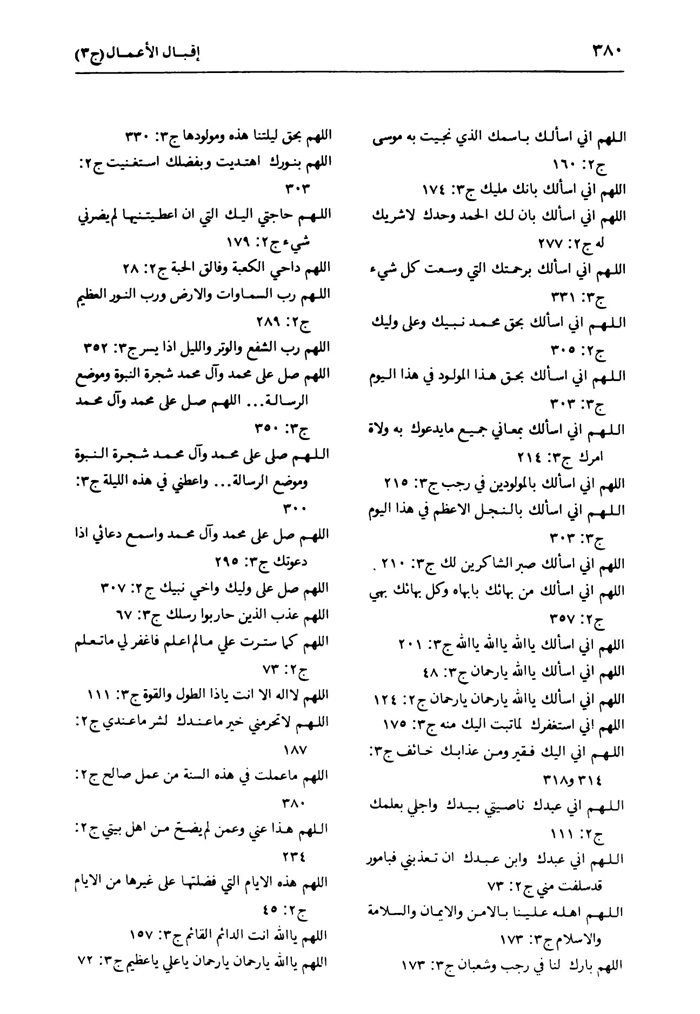 ٣٨٠
إقبال الأعمال (ج٣)
اللهم اني اسألك باسمك الذي نجيت به موسى
ج٢: ١٦٠
اللهم اني اسألك بانك مليك ج٣: ١٧٤
اللهم اني اسألك بان لك الحمد وحدك لاشريك
له ج٢: ٢٧٧
اللهم اني اسألك برحمتك التي وسعت كل شيء
ج٣: ٣٣١
اللهم اني اسألك بحق محمد نبيك وعلى وليك
ج٢: ٣٠٥
اللهم اني اسألك بحق هذا المولود في هذا اليوم
ج٣: ٣٠٣
اللهم اني اسألك بمعاني جميع مايدعوك به ولاة
امرك ج٣: ٢١٤
اللهم اني اسألك بالمولودين في رجب ج٣: ٢١٥
اللهم اني اسألك بالنجل الاعظم في هذا اليوم
ج٣: ٣٠٣
اللهم اني اسألك صبر الشاكرين لك ج٣: ٢١٠.
اللهم اني اسألك من بهائك بابهاه وكل بهائك بهي
ج٢: ٣٥٧
اللهم اني اسألك ياالله ياالله ياالله ج٣: ٢٠١
اللهم اني اسألك ياالله يارحمان ج٣: ٤٨
اللهم اني اسألك ياالله يارحمان يارحمان ج٢: ١٢٤
اللهم اني استغفرك لماتبت اليك منه ج٣: ١٧٥
اللهم اني اليك فقير ومن عذابك خائف ج٣:
٣١٤ و٣١٨
اللهم اني عبدك ناصيتي بيدك واجلي بعلمك
ج٢: ١١١
اللهم اني عبدك وابن عبدك ان تعذبني فبامور
قدسلفت مني ج٢: ٧٣
اللهم اهله علينا بالامن والايمان والسلامة
والاسلام ج٣: ١٧٣
اللهم بارك لنا في رجب وشعبان ج٣: ١٧٣
اللهم بحق ليلتنا هذه ومولودها ج٣: ٣٣٠
اللهم بنورك اهتديت وبفضلك استغنيت ج٢:
٣٠٣
اللهم حاجتي اليك التي ان اعطيتنيها لم يضرني
شيء ج٢: ١٧٩
اللهم داحي الكعبة وفالق الحبة ج٢: ٢٨
اللهم رب السماوات والارض ورب النور العظيم
ج٢: ٢٨٩
اللهم رب الشفع والوتر والليل اذا يسر ج٣: ٣٥٢
اللهم صل على محمد وآل محمد شجرة النبوة وموضع
الرسالة... اللهم صل على محمد وآل محمد
ج٣: ٣٥٠
اللهم صلى على محمد وآل محمد شجرة النبوة
وموضع الرسالة... واعطني في هذه الليلة ج٣:
٣٠٠
اللهم صل على محمد وآل محمد واسمع دعائي اذا
دعوتك ج٣: ٢٩٥
اللهم صل على وليك واخي نبيك ج٢: ٣٠٧
اللهم عذب الذين حاربوا رسلك ج٣: ٦٧
اللهم كما سترت علي مالم اعلم فاغفر لي ماتعلم
ج٢: ٧٣
اللهم لااله الا انت ياذا الطول والقوة ج٣: ١١١
اللهم لاتحرمني خير ماعندك لشر ماعندي ج٢:
١٨٧
اللهم ماعملت في هذه السنة من عمل صالح ج٢:
٣٨٠
اللهم هذا عني وعمن لم يضح من اهل بيتي ج٢:
٢٣٤
اللهم هذه الايام التي فضلتها على غيرها من الايام
ج٢: ٤٥
اللهم ياالله انت الدائم القائم ج٣: ١٥٧
اللهم ياالله يارحمان يارحمان ياعلي ياعظيم ج٣: ٧٢